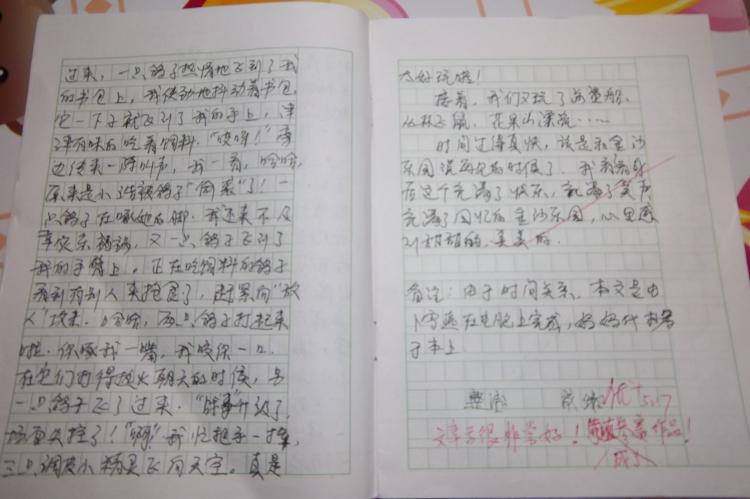 过来，一只鸽子热情地飞到了我
的书包上，我使劲地抖动着书包，
它一下子就飞到了我的手上，津
津有味的吃着饲料。“哎呀！”旁
边传来一阵叫声，我一看，哈哈，
原来是小洁被鸽子“围累”了！一
只鸽子在啄她的脚。我还来不及
幸灾乐祸，又一只鸽子飞到了
我的手臂上。正在吃饲料的鸽子
看到有别人来抢食了，赶紧向“敌
人”攻来。哈哈，两只鸽子打起来
啦。你啄我一嘴，我咬你一口。
在它们打得热火朝天的时候，另
一只鸽子飞了过来。“战事”升级了，
场面失控了！“啊”我忙把手一挥，
三只调皮小精灵飞向天空。真是
太好玩啦！
接着，我们又玩了海盗船、
丛林飞鼠、花果山漂流……
时间过得真快，该是和金沙
乐园说再见的时候了。我看看身
后这个充满了快乐，充满了笑声
充满了回忆的金沙乐园，心里感
到甜甜的，美美的。
备注：由于时间关系，本文是由
在电脑上完成，妈妈代抄写
于本上
优+ 5.17
文章写得非常好！
作品！